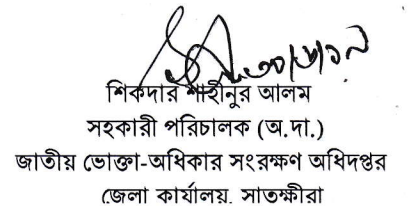 ৩০/৮/১৯
শিকদার শাহীনুর আলম
সহকারী পরিচালক (অ.দা.)
জাতীয় ভোক্তা-অধিকার সংরক্ষণ অধিদপ্তর
জেলা কার্যালয়, সাতক্ষীরা